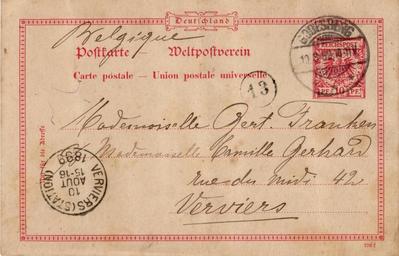 Deutschland
Belgique
Postkarte — Weltpostverein
Carte postale — Union postale universelle
REICHSPOST
10 PF 10
13
Mademoiselle Bert. Franken
Mademoiselle Camille Gerhard
rue du midi 42
Verviers
VERVIERS (STATION)
10
AOUT
15-16
1899